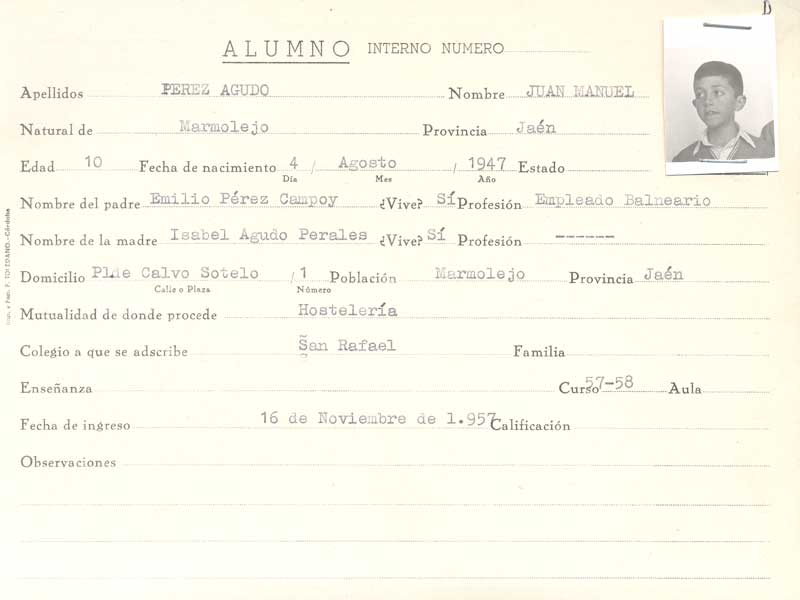 B
ALUMNO INTERNO NUMERO
Apellidos PEREZ AGUDO Nombre JUAN MANUEL
Natural de Marmolejo Provincia Jaén
Edad 10 Fecha de nacimiento 4 / Agosto / 1947 Estado
Día Mes Año
Nombre del padre Emilio Pérez Campoy ¿Vive? Sí Profesión Empleado Balneario
Nombre de la madre Isabel Agudo Perales ¿Vive? Sí Profesión -----
Domicilio Calvo Sotelo / 1 Población Marmolejo Provincia Jaén
Calle o Plaza Número
Mutualidad de donde procede Hostelería
Colegio a que se adscribe San Rafael Familia
Enseñanza Curso 57-58 Aula
Fecha de ingreso 16 de Noviembre de 1.957 Calificación
Observaciones